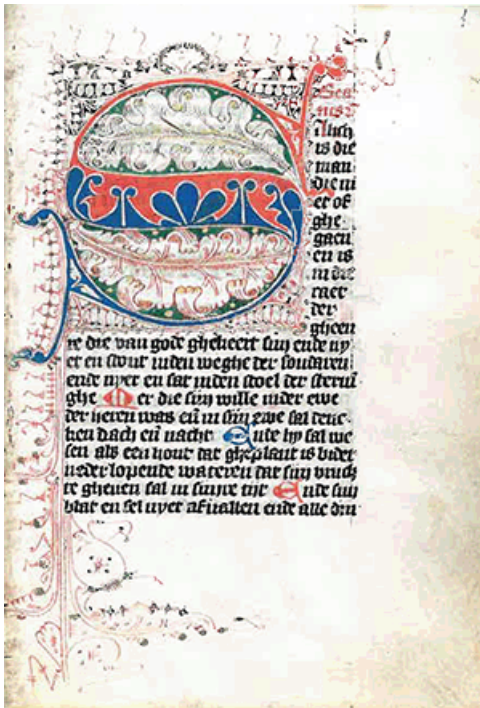 S
alich
is die
man
die ni
et of
ghe
gaen
en is
in die
raet
der
gheen
re die van gode ghekeert sijn ende ny
et en stout inden weghe der sondaren
ende nyet en sat inden stoel der sterūn
ghe Mer die sijn wille inder ewe
der heren was eñ in sijn ewe sal denc
ken dach eñ nacht Ende hy sal we
sen als een hout dat gheplant is biden
neder lopende wateren dat sijn vruch
te gheuen sal in sijnre tijt Ende sijn
blat en sel nyet af uallen ende alle din